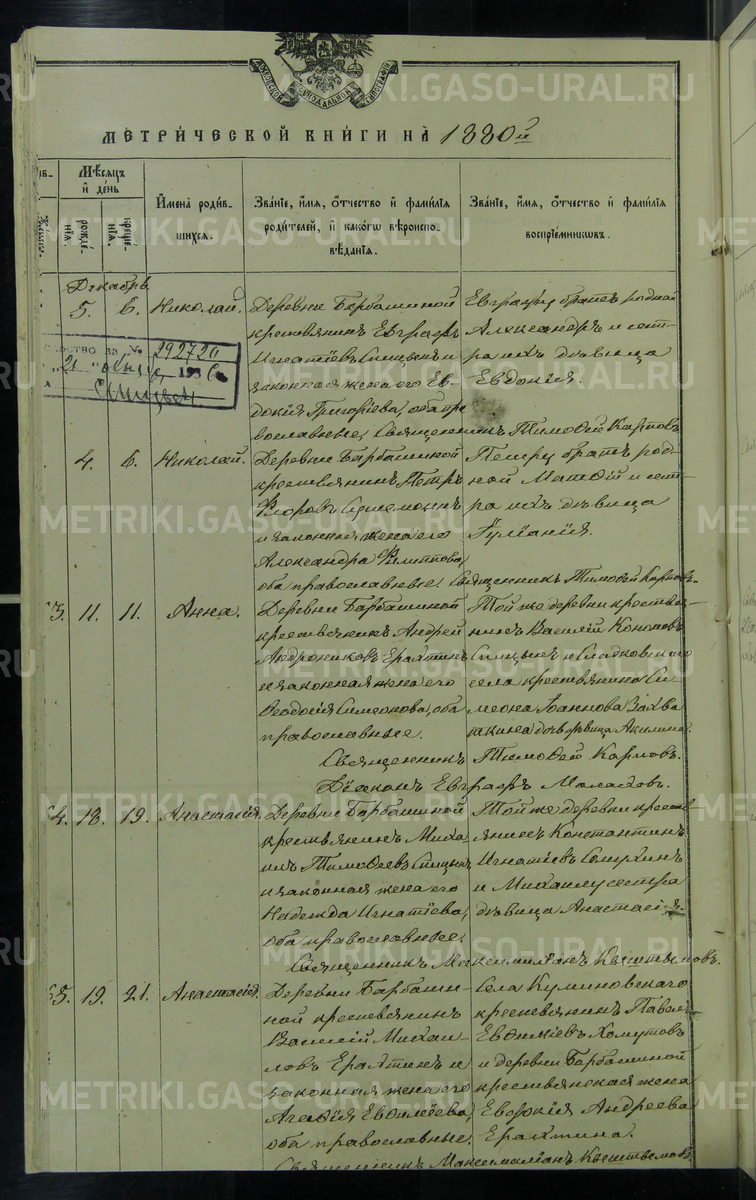 МЕТРИЧЕСКОЙ КНИГИ НА 1880й
Мѣсяцъ и день
рожденія. крещенія.
Имена родившихся.
Званіе, имя, отчество и фамилія родителей, и какого вѣроисповѣданія.
Званіе, имя, отчество и фамилія воспріемниковъ.
Декабрь
5. 6. Николай.
Деревни Барбашиной
крестьянинъ Евграфъ
Игнатіевъ Спицынъ и
законная жена его Ев-
докія Григоріева, оба пра
вославные,
Евграфу братъ родной
Александръ и сест-
ра ихъ дѣвица
Евдокія.
Священникъ Тимофей Карповъ
№ 292720
193
4. 6. Николай.
Деревни Барбашиной
крестьянинъ Петръ
Флоровъ
и законная жена его
Александра Филиппова,
оба православные,
Петру братъ род-
ной Матфій и сест-
ра ихъ дѣвица
Іуліанія.
Священникъ Тимофей Карповъ.
3. 11. 11. Анна.
Деревни Барбашиной
крестьянинъ Андрей
Андрониковъ Ерахтинъ
и законная жена его
Феодосія Симеонова, оба
православные.
Той же деревни крестья-
нинъ Василій Кононовъ
Спицынъ и Сладковскаго
села крестьянина Си
меона Іоаннова Захва
ткина дочь дѣвица Акилина.
Священникъ Тимофей Карповъ.
Діаконъ Евграфъ
4. 18. 19. Анастасія.
Деревни Барбашиной
крестьянинъ Миха
илъ Тимофеевъ Спицынъ
и законная жена его
Надежда Игнатіева,
оба православные,
Той же деревни кресть
янинъ Константинъ
Игнатіевъ
и Михаилу сестра
дѣвица Анастасія.
Священникъ Максимиліанъ Кыштымовъ.
5. 19. 21. Анастасія.
Деревни Барбаши-
ной крестьянинъ
Василій Михаи-
ловъ Ерахтинъ и
законная жена его
Агафія
оба православные,
Села Куминовскаго
крестьянинъ Павелъ
Евфиміевъ Хомутовъ
и деревни Барбашиной
крестьянская жена
Евдокія Андреева
Ерахтина.
Священникъ Максимиліанъ Кыштымовъ
METRIKI.GASO-URAL.RU